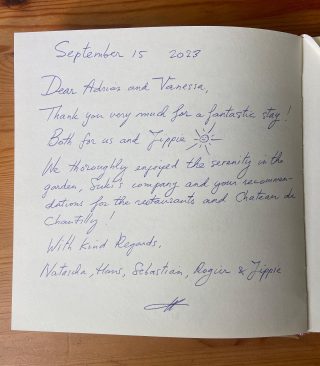 September 15 2023
Dear Adrian and Vanessa,
Thank you very much for a fantastic stay!
Both for us and Jippie
We thoroughly enjoyed the serenity in the
garden, Suki's company and your recommen-
dations for the restaurants and Chateau de
Chantilly!
With Kind Regards,
Natascha, Hans, Sebastian, Rogier & Jippie